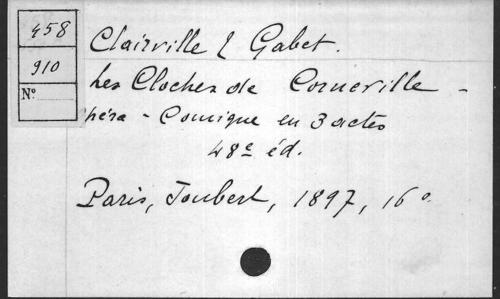 458
910
N°
Clairville & Gabet.
Les Cloches de Corneville -
péra - Comique en 3 actes
48e éd.
Paris, Joubert, 1897, 16°.